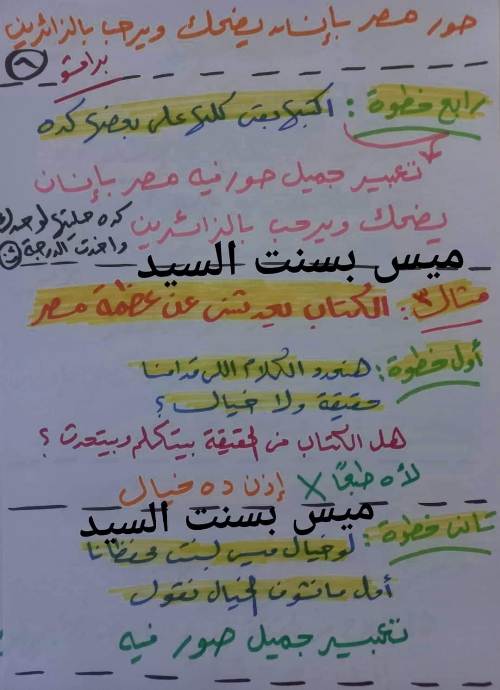 صور مصر بإنسان يضحك ويرحب بالزائرين
برافتو
٨
رابع خطوة : اكتبها بقى كلها على بعضها كده
تعبير جميل صور فيه مصر بإنسان
يضحك ويرحب بالزائرين
كده حليتها لوحدك
وأخدت الدرجة
ميس بسنت السيد
مثال ٣ : الكتاب يحدثني عن عظمة مصر
أول خطوة : هنحدد الكلام اللى قدامنا
حقيقة ولا خيال ؟
هل الكتاب فى الحقيقة بيتكلم وبيتحدث ؟
لأه طبعًا X إذن ده خيال
ميس بسنت السيد
تانى خطوة : لو خيال ميس بسنت محفظانا
أول ما نشوف الخيال نقول
تعبير جميل صور فيه